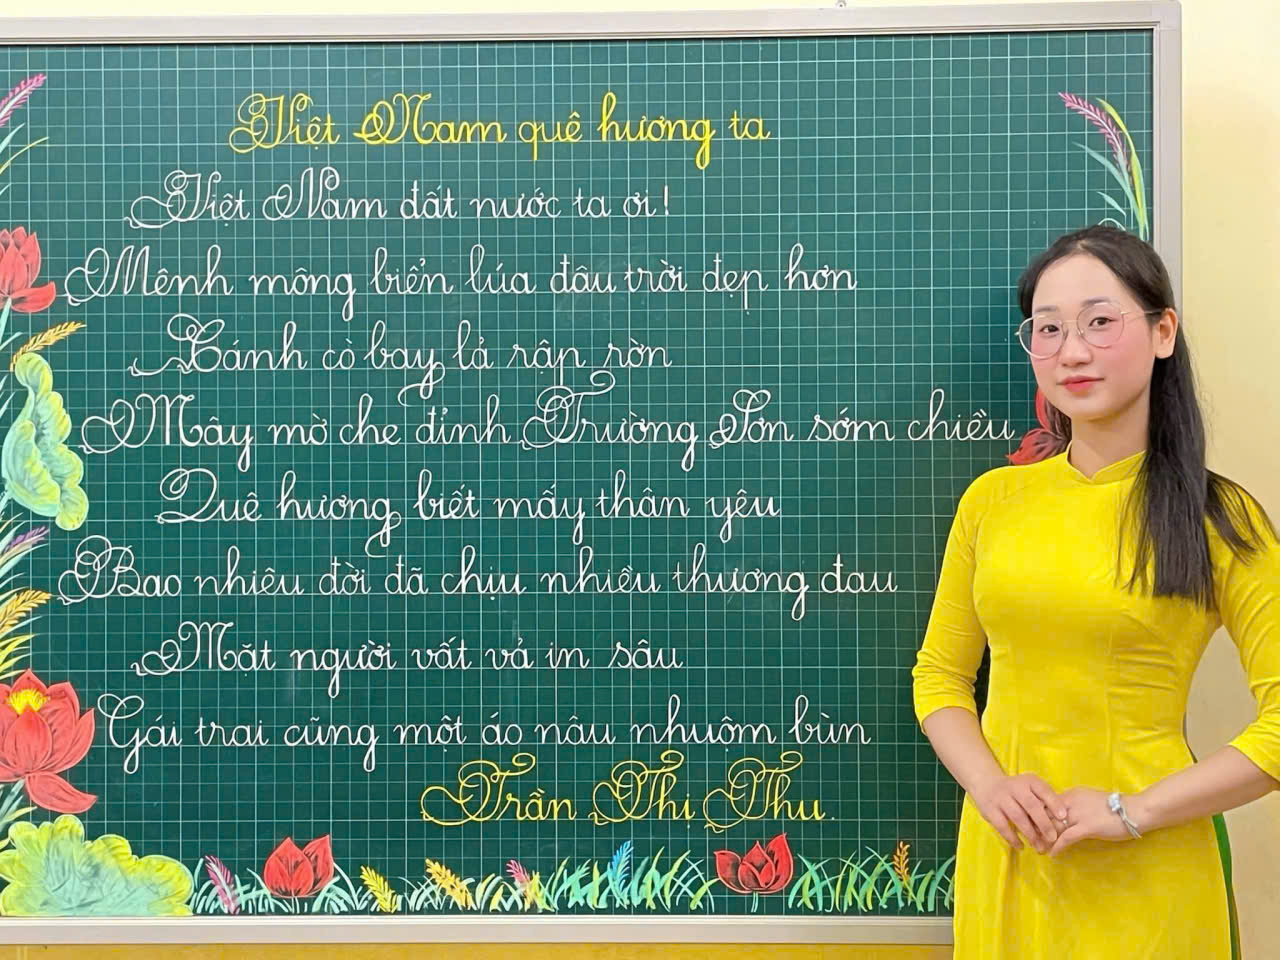 Việt Nam quê hương ta
Việt Nam đất nước ta ơi!
Mênh mông biển lúa đâu trời đẹp hơn
Cánh cò bay lả rập rờn
Mây mờ che đỉnh Trường Sơn sớm chiều
Quê hương biết mấy thân yêu
Bao nhiêu đời đã chịu nhiều thương đau
Mặt người vất vả in sâu
Gái trai cũng một áo nâu nhuộm bùn
Trần Thị Thu.